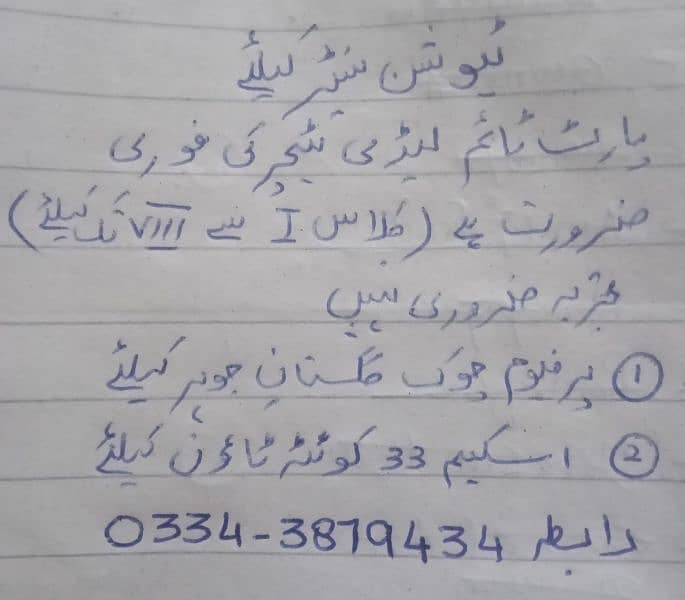 ٹیوشن سینٹر کیلئے
پارٹ ٹائم لیڈی ٹیچر کی فوری
ضرورت ہے (کلاس I سے VIII تک کیلئے)
تجربہ ضروری نہیں
① پرفیوم چوک گلستانِ جوہر کیلئے
② اسکیم 33 کوئٹہ ٹاؤن کیلئے
رابطہ 0334-3879434